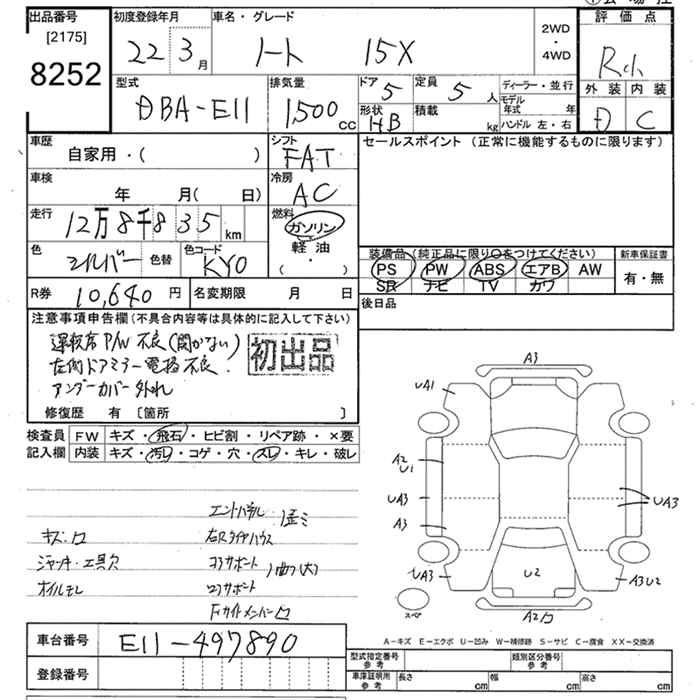 出品番号
[2175]
8252
初度登録年月
22 3月
車名・グレード
ノート 15X
2WD
・
4WD
評価点
外装 内装
D C
型式
DBA-E11
排気量
1500 CC
ドア
5
定員
5人
ディーラー・並行
モデル年式 年
形状
HB
積載
kg
ハンドル 左・右
車歴
自家用・( )
シフト
FAT
セールスポイント (正常に機能するものに限ります)
車検
年 月( 日)
冷房
AC
走行
12万8千835 km
燃料
ガソリン
・
軽油
・
( )
色
シルバー
色替
色コード
KY0
装備品(純正品に限り○をつけてください)
PS PW ABS エアB AW
SR ナビ TV カワ
新車保証書
有・無
R券 10,640 円
名変期限 月 日
後日品
注意事項申告欄(不具合内容等は具体的に記入して下さい)
運転席 P/W 不良(開かない)
左側ドアミラー電格不良.
アンダーカバー外れ
初出品
修復歴 有 [箇所 ]
検査員
記入欄
FW キズ・飛石・ヒビ割・リペア跡・×要
内装 キズ・汚レ・コゲ・穴・スレ・キレ・破レ
A3
UA1
A2
U1
UA3
A3
UA3
UA3
A3U2
U2
スペア
キズ・
ジャッキ・工具欠
オイルモレ
右Rタイヤハウス
コアサポート
A-キズ E-エクボ U-凹み W-補修跡 S-サビ C-腐食 XX-交換済
車台番号 E11-497890
登録番号
型式指定番号
参考
類別区分番号
参考
車庫証明用
参考
長さ cm
幅 cm
高さ cm